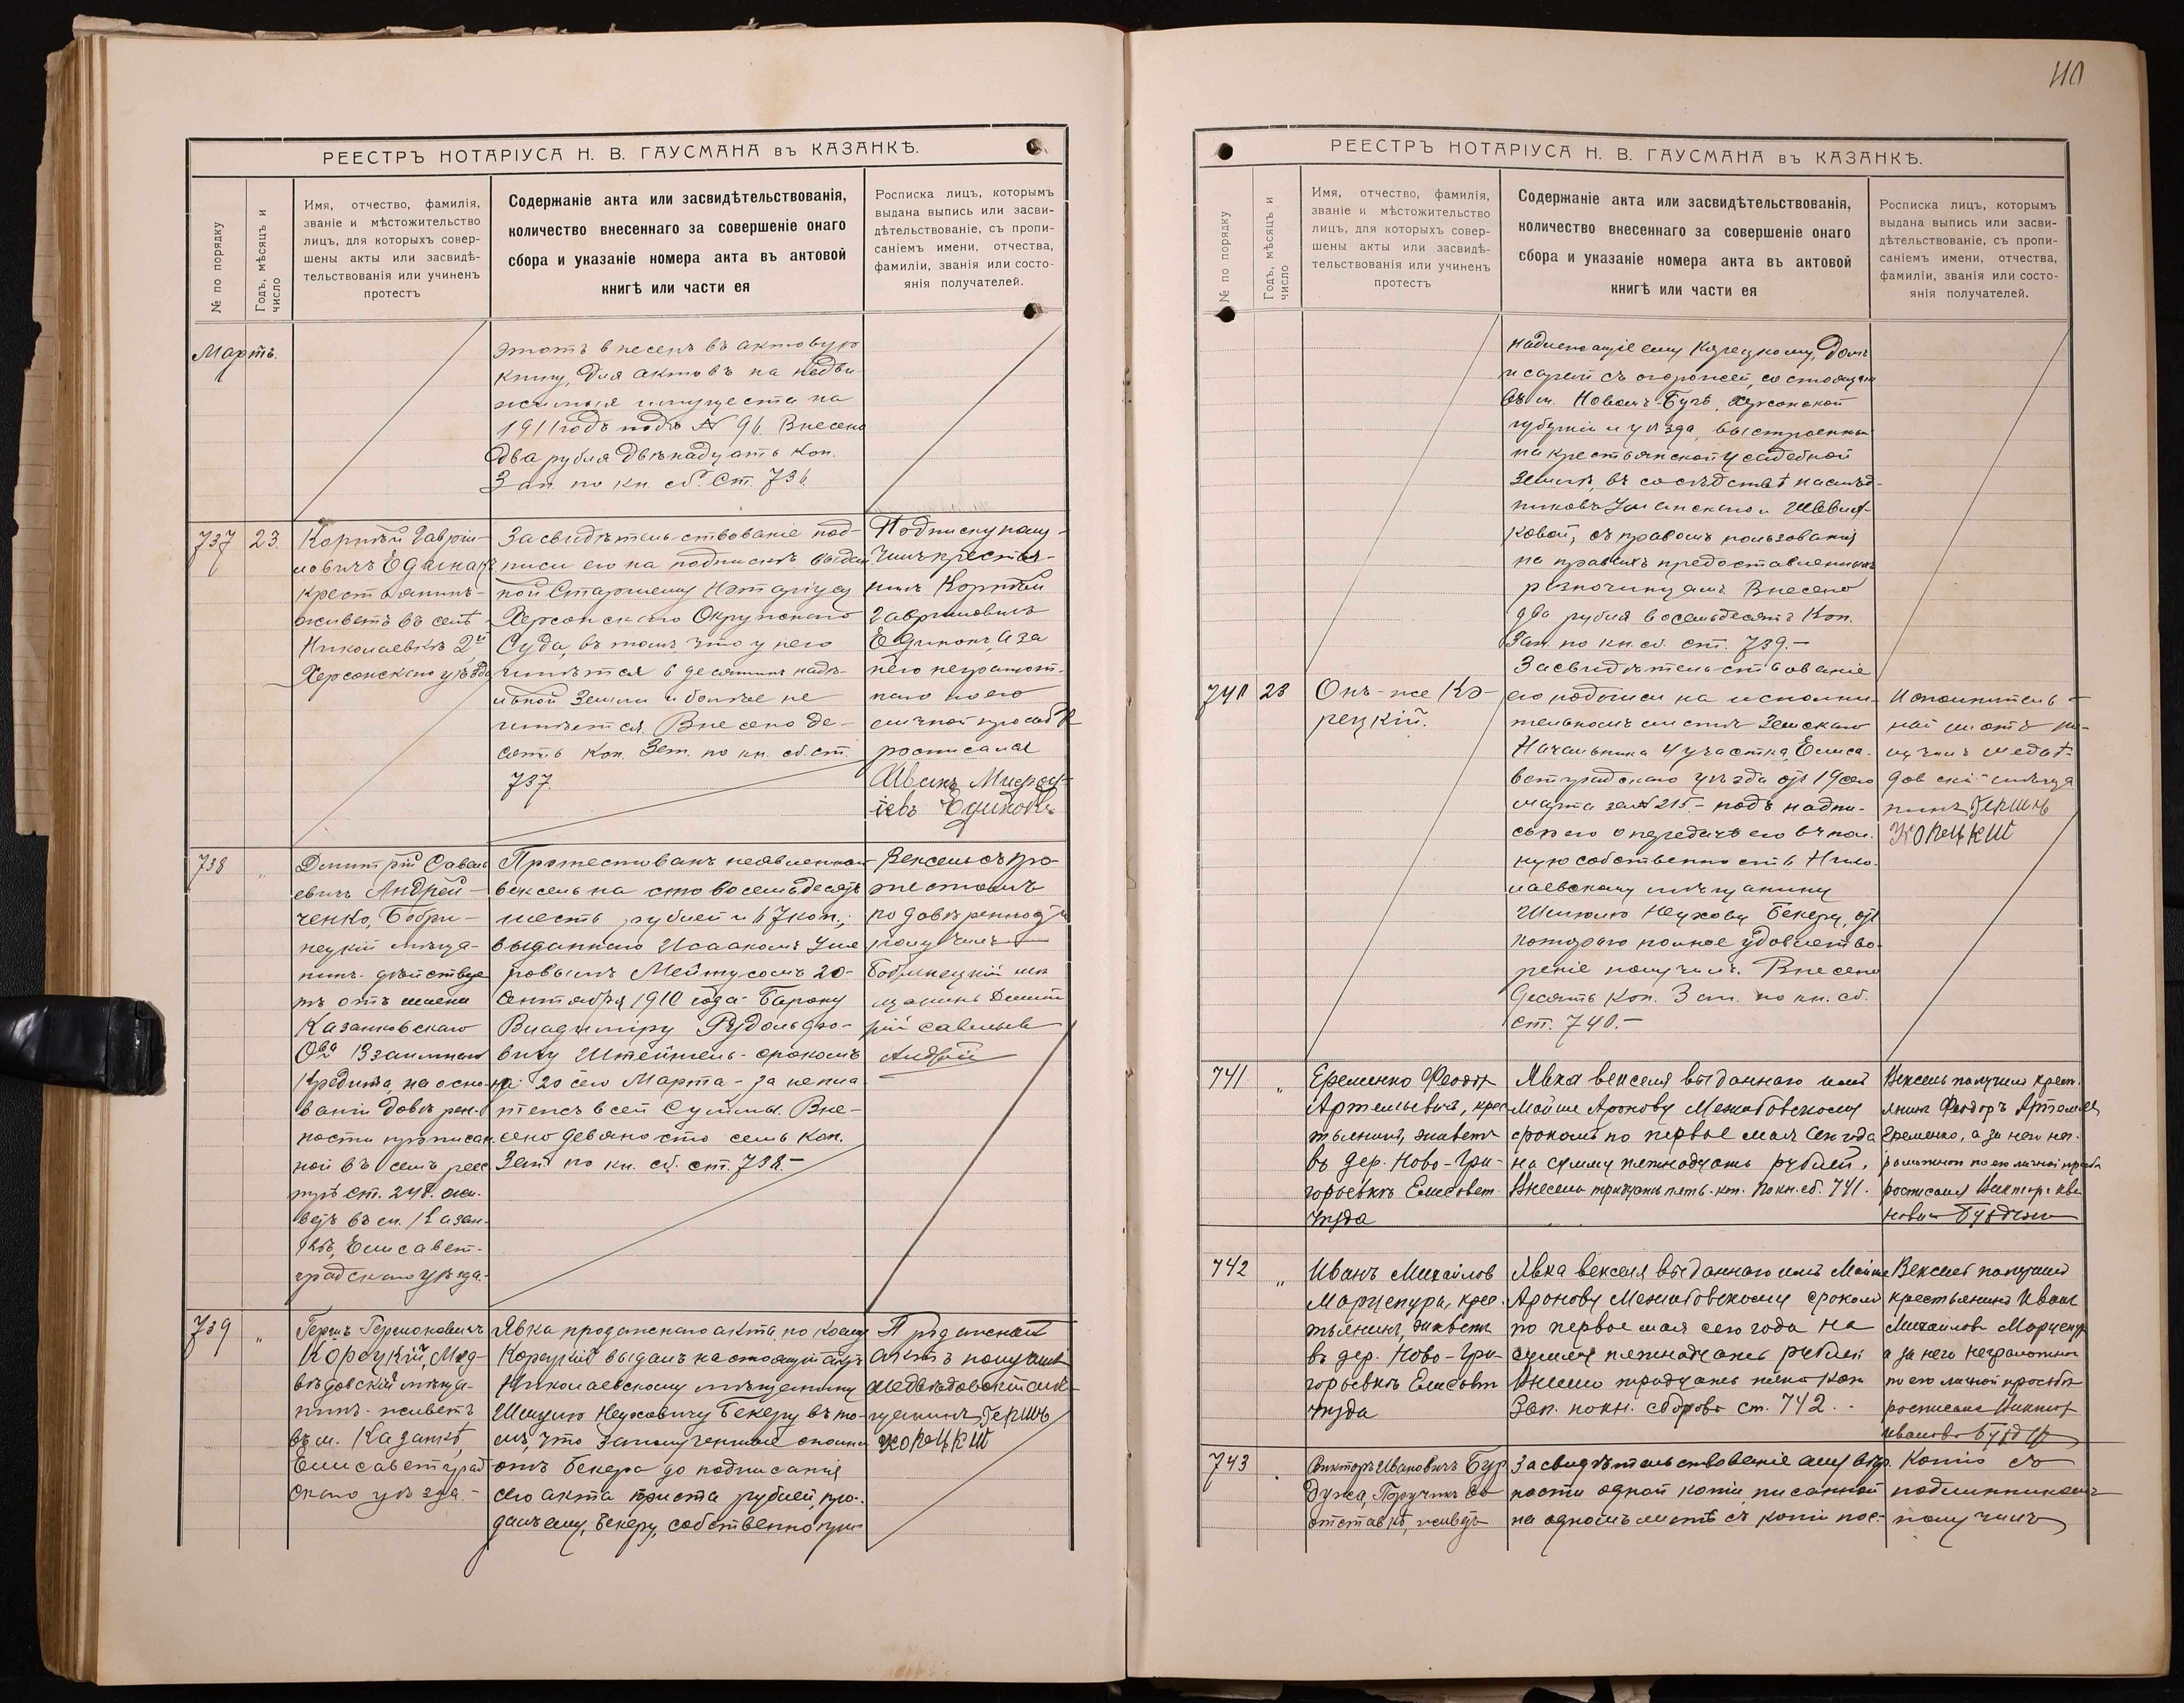 РЕЕСТРЪ НОТАРІУСА Н. В. ГАУСМАНА въ КАЗАНКѢ.
№ по порядку
Годъ, мѣсяцъ и
число
Имя, отчество, фамилія,
званіе и мѣстожительство
лицъ, для которыхъ совер-
шены акты или засвидѣ-
тельствованія или учиненъ
протестъ
Содержаніе акта или засвидѣтельствованія,
количество внесеннаго за совершеніе онаго
сбора и указаніе номера акта въ актовой
книгѣ или части ея
Росписка лицъ, которымъ
выдана выпись или засви-
дѣтельствованіе, съ пропи-
саніемъ имени, отчества,
фамиліи, званія или состо-
янія получателей.
Мартъ.
этотъ внесенъ въ актовую
книгу, для актовъ на недви-
жимыя имущества на
1911 годъ подъ № 96. Внесено
два рубля двѣнадцать коп.
Зап. по кн. сб. ст. 736.
737
23.
Корнѣй Гаврiи-
ловичъ
крестьянинъ-
живетъ въ селѣ
Николаевкѣ 2й
Херсонскаго уѣзда
Засвидѣтельствованіе под-
писи его на подпискѣ выдан
ной Старшему Нотаріусу
Херсонскаго Окружнаго
Суда, въ томъ что у него
имѣется 6 десятинъ надѣ-
льной земли и болѣе не
имѣется. Внесено де-
сять коп. Зап. по кн. сб. ст
737.
Подписку полу-
чилъ крестья-
нинъ Корнѣй
Гавриловичъ
а за
него неграмот-
наго по его
личной просьбѣ
росписался
Иванъ
738
"
Дмитрій Савель
евичъ Андрей-
ченко, Бобри-
нецкій мѣща-
нинъ- дѣйствуе
тъ отъ имени
Казанковскаго
Ова Взаимнаго
Кредита, на осно-
ваніи довѣрен-
ности прописан
ной въ семъ реес
трѣ ст. 248. жи-
ветъ въ м. Казан-
кѣ, Елисавет-
градскаго уѣзда.
Протестованъ неявленный
вексель на сто восемьдесятъ
шесть рублей и 67 коп.,
выданнаго Исаакомъ
Мейтусомъ 20-
Сентября 1910 года- Барону
Владиміру Рудольфо-
вичу Штейгель- срокомъ
на 20 сего Марта- за непла
тежъ всей суммы. Вне-
сено девяносто семь коп.
Зап. по кн. сб. ст. 738.-
Вексель съ про-
тестомъ
по довѣренности
получилъ
Бобринецкій мѣ
щанинъ Дмит
рій Савельев
739
"
Гершъ
Корецкій, Мед-
вѣдовскій мѣща-
нинъ- живетъ
въ м. Казанкѣ,
Елисаветград
скаго уѣзда.-
Явка продажнаго акта, по коему
Корецкій выдалъ настоящій актъ
Николаевскому мѣщанину
Шлемѣ Неуховичу Бекеру въ то-
мъ, что за полученные сполна
отъ Бекера до подписанія
сего акта триста рублей, про-
далъ ему, Бекеру, собственно при-
Продажный
актъ получилъ
медвѣдовскій мѣ-
щанинъ Гершъ
Корецкій
110
РЕЕСТРЪ НОТАРІУСА Н. В. ГАУСМАНА въ КАЗАНКѢ.
№ по порядку
Годъ, мѣсяцъ и
число
Имя, отчество, фамилія,
званіе и мѣстожительство
лицъ, для которыхъ совер-
шены акты или засвидѣ-
тельствованія или учиненъ
протестъ
Содержаніе акта или засвидѣтельствованія,
количество внесеннаго за совершеніе онаго
сбора и указаніе номера акта въ актовой
книгѣ или части ея
Росписка лицъ, которымъ
выдана выпись или засви-
дѣтельствованіе, съ пропи-
саніемъ имени, отчества,
фамиліи, званія или состо-
янія получателей.
надлежащіе ему Корецкому, домъ
и сарай съ огорожей, состоящіе
въ м. Новомъ-Бугѣ, Херсонской
губерніи и уѣзда, выстроенные
на крестьянской усадебной
землѣ, въ сосѣдствѣ наслѣд-
никовъ Уманскаго и
ковой, съ правомъ пользованія
на правахъ предоставленныхъ
разночинцамъ. Внесено
два рубля восемьдесятъ коп.
Зап. по кн. сб. ст. 739.-
740
23
Онъ-же Ко-
рецкій.
Засвидѣтельствованіе
его подписи на исполни-
тельномъ листѣ Земскаго
Начальника 4 участка, Елиса-
ветградскаго уѣзда отъ 19 сего
марта за № 215- подъ надпи-
сью его о передачѣ его въ пол-
ную собственность Нико-
лаевскому мѣщанину
Шлемѣ Неухову Бекеру, отъ
котораго полное удовлетво-
реніе получилъ. Внесено
десять коп. Зап. по кн. сб.
ст. 740.-
Исполнитель-
ный листъ по-
лучилъ медвѣ-
довскій мѣща
нинъ Гершъ
Корецкій
741
"
Еременко Феодоръ
Артемьевичъ, крес
тьянинъ, живетъ
въ дер. Ново-Гри-
горьевкѣ Елисавет.
уѣзда
Явка векселя выданнаго имъ
Мойше Аронову Межибовскому
срокомъ по первое мая сего года
на сумму пятнадцать рублей.
Внесено тридцать пять. коп. По кн. сб. 741.
Вексель получилъ крест.
янинъ Феодоръ Артемьев
Еременко, а за него нег-
рамотнаго по его личной просьбѣ
росписался Викторъ Ива
новъ
742
"
Иванъ Михайлов
Марценура, крес.
тьянинъ, живетъ
въ дер. Ново-Гри-
горьевкѣ Елисавет
уѣзда
Явка векселя выданнаго имъ Мойше
Аронову Межибовскому срокомъ
по первое мая сего года на
сумму пятнадцать рублей
Внесено тридцать пять коп
Зап. по кн. сборовъ ст. 742.
Вексель получилъ
крестьянинъ Иванъ
Михайловъ Марценура
а за него неграмотнаго
по его личной просьбѣ
росписался Виктор
Ивановъ
743
Викторъ Ивановичъ Бур
дужа, Поручикъ въ
отставкѣ, живетъ
Засвидѣтельствованіе
ности одной копіи писанной
на одномъ листѣ съ копіи пос-
Копію съ
подлинникомъ
получилъ